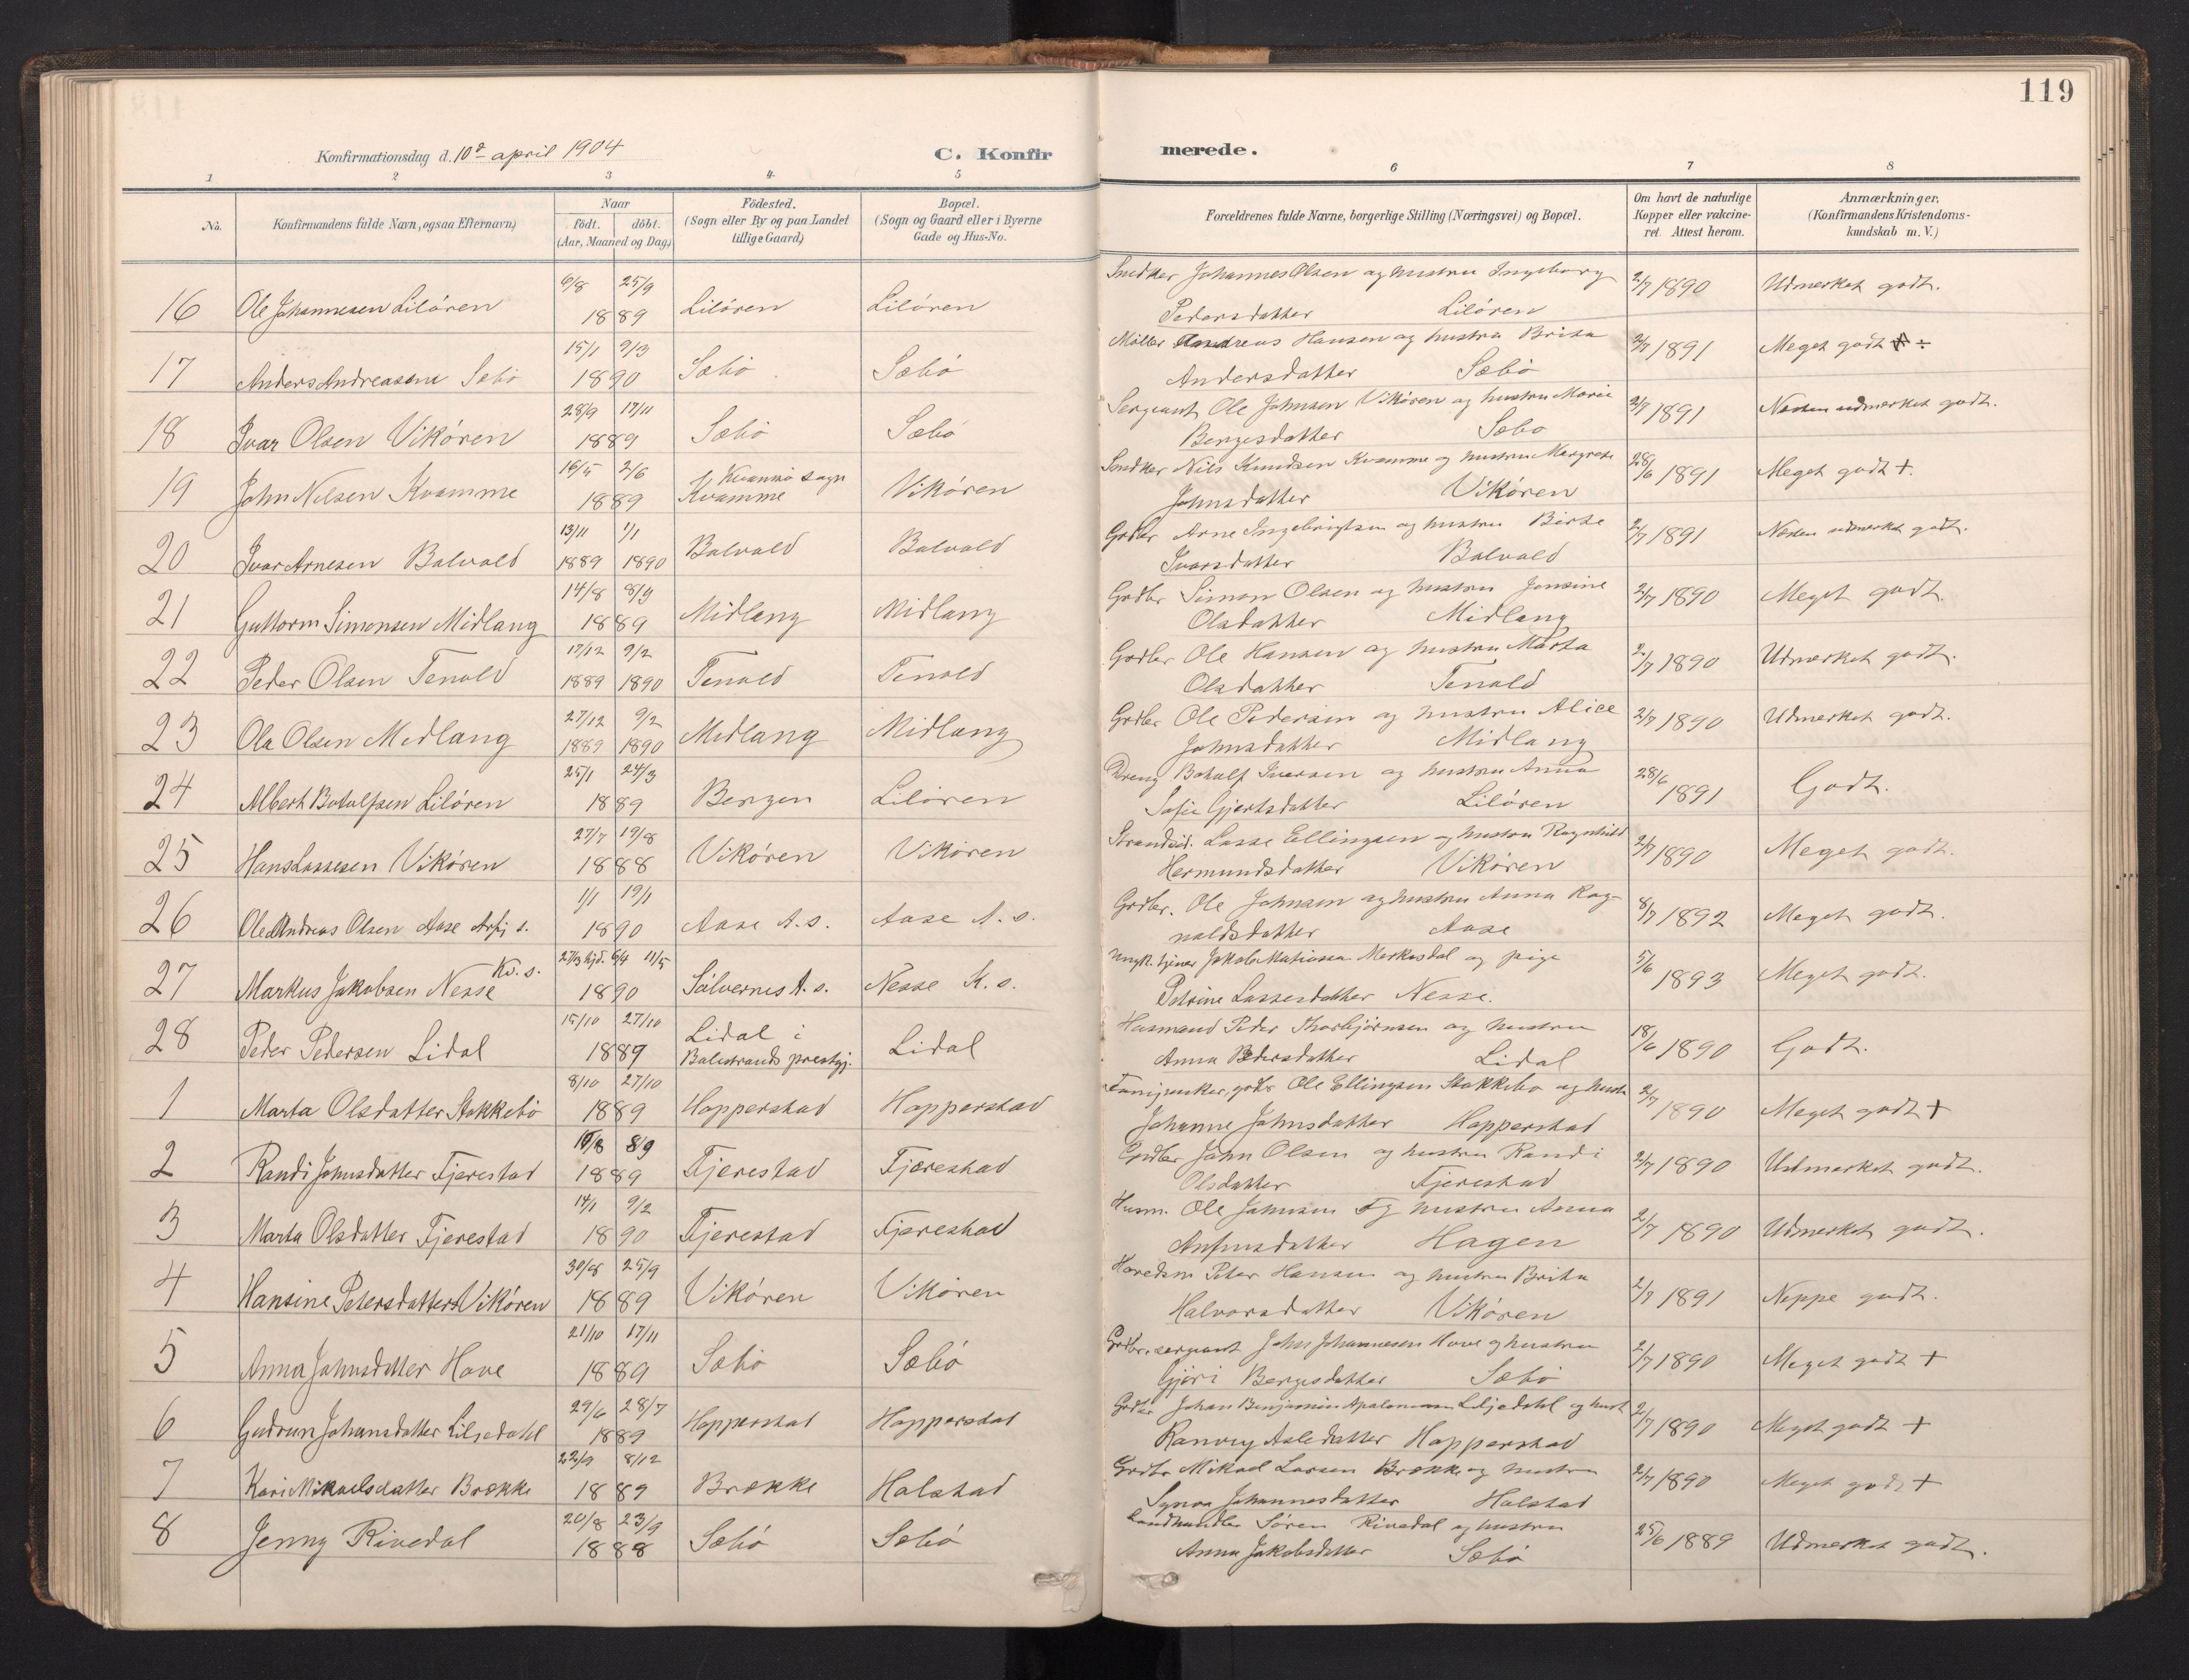 119
Konfirmationsdag d. 10de april 1904
C. Konfirmerede.
1 2 3 4 5 6 7 8
No. Konfirmandens fulde Navn, ogsaa Efternavn) Naar födt. döbt. (Aar, Maaned og Dag) Födested. (Sogn eller By og paa Landet tillige Gaard) Bopæl. (Sogn og Gaard eller i Byerne Gade og Hus-No. Forældrenes fulde Navne, borgerlige Stilling (Næringsvei) og Bopæl. Om havt de naturlige Kopper eller vakcineret. Attest herom. Anmærkninger. (Konfirmandens Kristendomskundskab m. V.)
6/8 25/9 Snedker Johannes Olsen og hustru Ingeborg
16 Ole Johannesen Liløren 1889 Liløren Liløren Pedersdatter Liløren 2/7 1890 Udmerket godt.
15/1 9/3 Møller Andreas Hansen og hustru Brita
17 Anders Andreassen Sæbø 1890 Sæbø Sæbø Andersdatter Sæbø 2/7 1891 Meget godt ÷
28/9 17/11 Sergeant Ole Johnsen Vikøren og hustru Marie
18 Ivar Olsen Vikøren 1889 Sæbø Sæbø Bergesdatter Sæbo 2/7 1891 Næsten udmerket godt.
16/5 2/6 Kvamsø sogn Snedker Nils Knudsen Kvamme og hustru Margrete
19 John Nilsen Kvamme 1889 Kvamme Vikøren Johnsdatter Vikøren 28/6 1891 Meget godt +.
13/11 1/1 Grdbr Arne Ingebrigtsen og hustru Birte
20 Ivar Arnesen Bolvald 1889 1890 Bolvald Bolvald Ivarsdatter Bolvald 2/7 1891 Næsten udmerket godt.
14/8 8/9 Grdbr Simon Olsen og hustru Jensine
21 Guttorm Simonsen Midlang 1889 Midlang Midlang Olsdatter Midlang 2/7 1890 Meget godt.
17/12 9/2 Grdbr Ole Hansen og hustru Marta
22 Peder Olsen Tenold 1889 1890 Tenold Tenold Olsdatter Tenold 2/7 1890 Udmerket godt.
27/12 9/2 Grdbr Ole Pedersen og hustru Alice
23 Ola Olsen Midlang 1889 1890 Midlang Midlang Johnsdatter Midlang 2/7 1890 Udmerket godt.
25/1 24/3 Dreng Botolf Iversen og hustru Anna
24 Albert Botolfsen Liløren 1889 Bergen Liløren Sofie Gjertsdatter Liløren 28/6 1891 Godt.
27/7 19/8 Strandsid. Lasse Ellingsen og hustru Ragnhild
25 Hans Lassesen Vikøren 1888 Vikøren Vikøren Hermundsdatter Vikøren 2/7 1890 Meget godt.
1/1 19/1 Grdbr. Ole Johnsen og hustru Anna Rag-
26 Ole Andreas Olsen Aase Arfj s. 1890 Aase A.s. Aase A.s. naldsdatter Aase 8/7 1892 Meget godt.
27/3 hjd. 6/4 11/5 Ungk. tjener Jakob Matiassen Merkesdal og pige
27 Markus Jakobsen Nesse Kv. s. 1890 Sølvernes A.s. Nesse K.s. Petrine Lassesdatter Nesse. 5/6 1893 Meget godt.
15/10 27/10 Husmand Peder Thorbjørnsen og hustru
28 Peder Pedersen Lidal 1889 Lidal i Balestrands prestgj. Lidal Anna Pedersdatter Lidal 18/6 1890 Godt.
8/10 27/10 Fanejunker, grdbr Ole Ellingsen Stokkebø og hustr
1 Marta Olsdatter Stokkebø 1889 Hopperstad Hopperstad Johanne Johnsdatter Hopperstad 2/7 1890 Meget godt +
8/9 Grdbr John Olsen og hustru Randi
2 Randi Johnsdatter Fjerestad 1889 Fjerestad Fjærestad Olsdatter Fjerestad 2/7 1890 Udmerket godt.
14/1 9/2 Husm. Ole Johnsen Fj hustru Anna
3 Marta Olsdatter Fjerestad 1890 Fjerestad Fjærestad Anfinsdatter Hagen 2/7 1890 Udmerket godt.
30/8 25/9 Peter Hansen og hustru Brita
4 Hansine Petersdatter Vikøren 1889 Vikøren Vikøren Halvorsdatter Vikøren 2/7 1891 Neppe godt.
21/10 17/11 Grdbr. sergeant John Johannesen Hove og hustru
5 Anna Johnsdatter Hove 1889 Sæbø Sæbø Gjøri Bergesdatter Sæbø 2/7 1890 Meget godt +
29/6 28/7 Grdbr Johan Benjamin Liljedahl og hust
6 Gudrun Johansdatter Liljedahl 1889 Hopperstad Hoppersdad Ranveig Asledatter Hopperstad 2/7 1890 Meget godt +
22/9 8/12 Grdbr Mikael Larsen Brække og hustru
7 Kari Mikaelsdatter Brække 1889 Brække Holstad Synva Johannesdatter Holstad 2/7 1890 Meget godt +
20/8 23/9 Landhandler Søren Rivedal og hustru
8 Jenny Rivedal 1888 Sæbø Sæbø Anna Jakobsdatter Sæbø 25/6 1889 Udmerket godt.